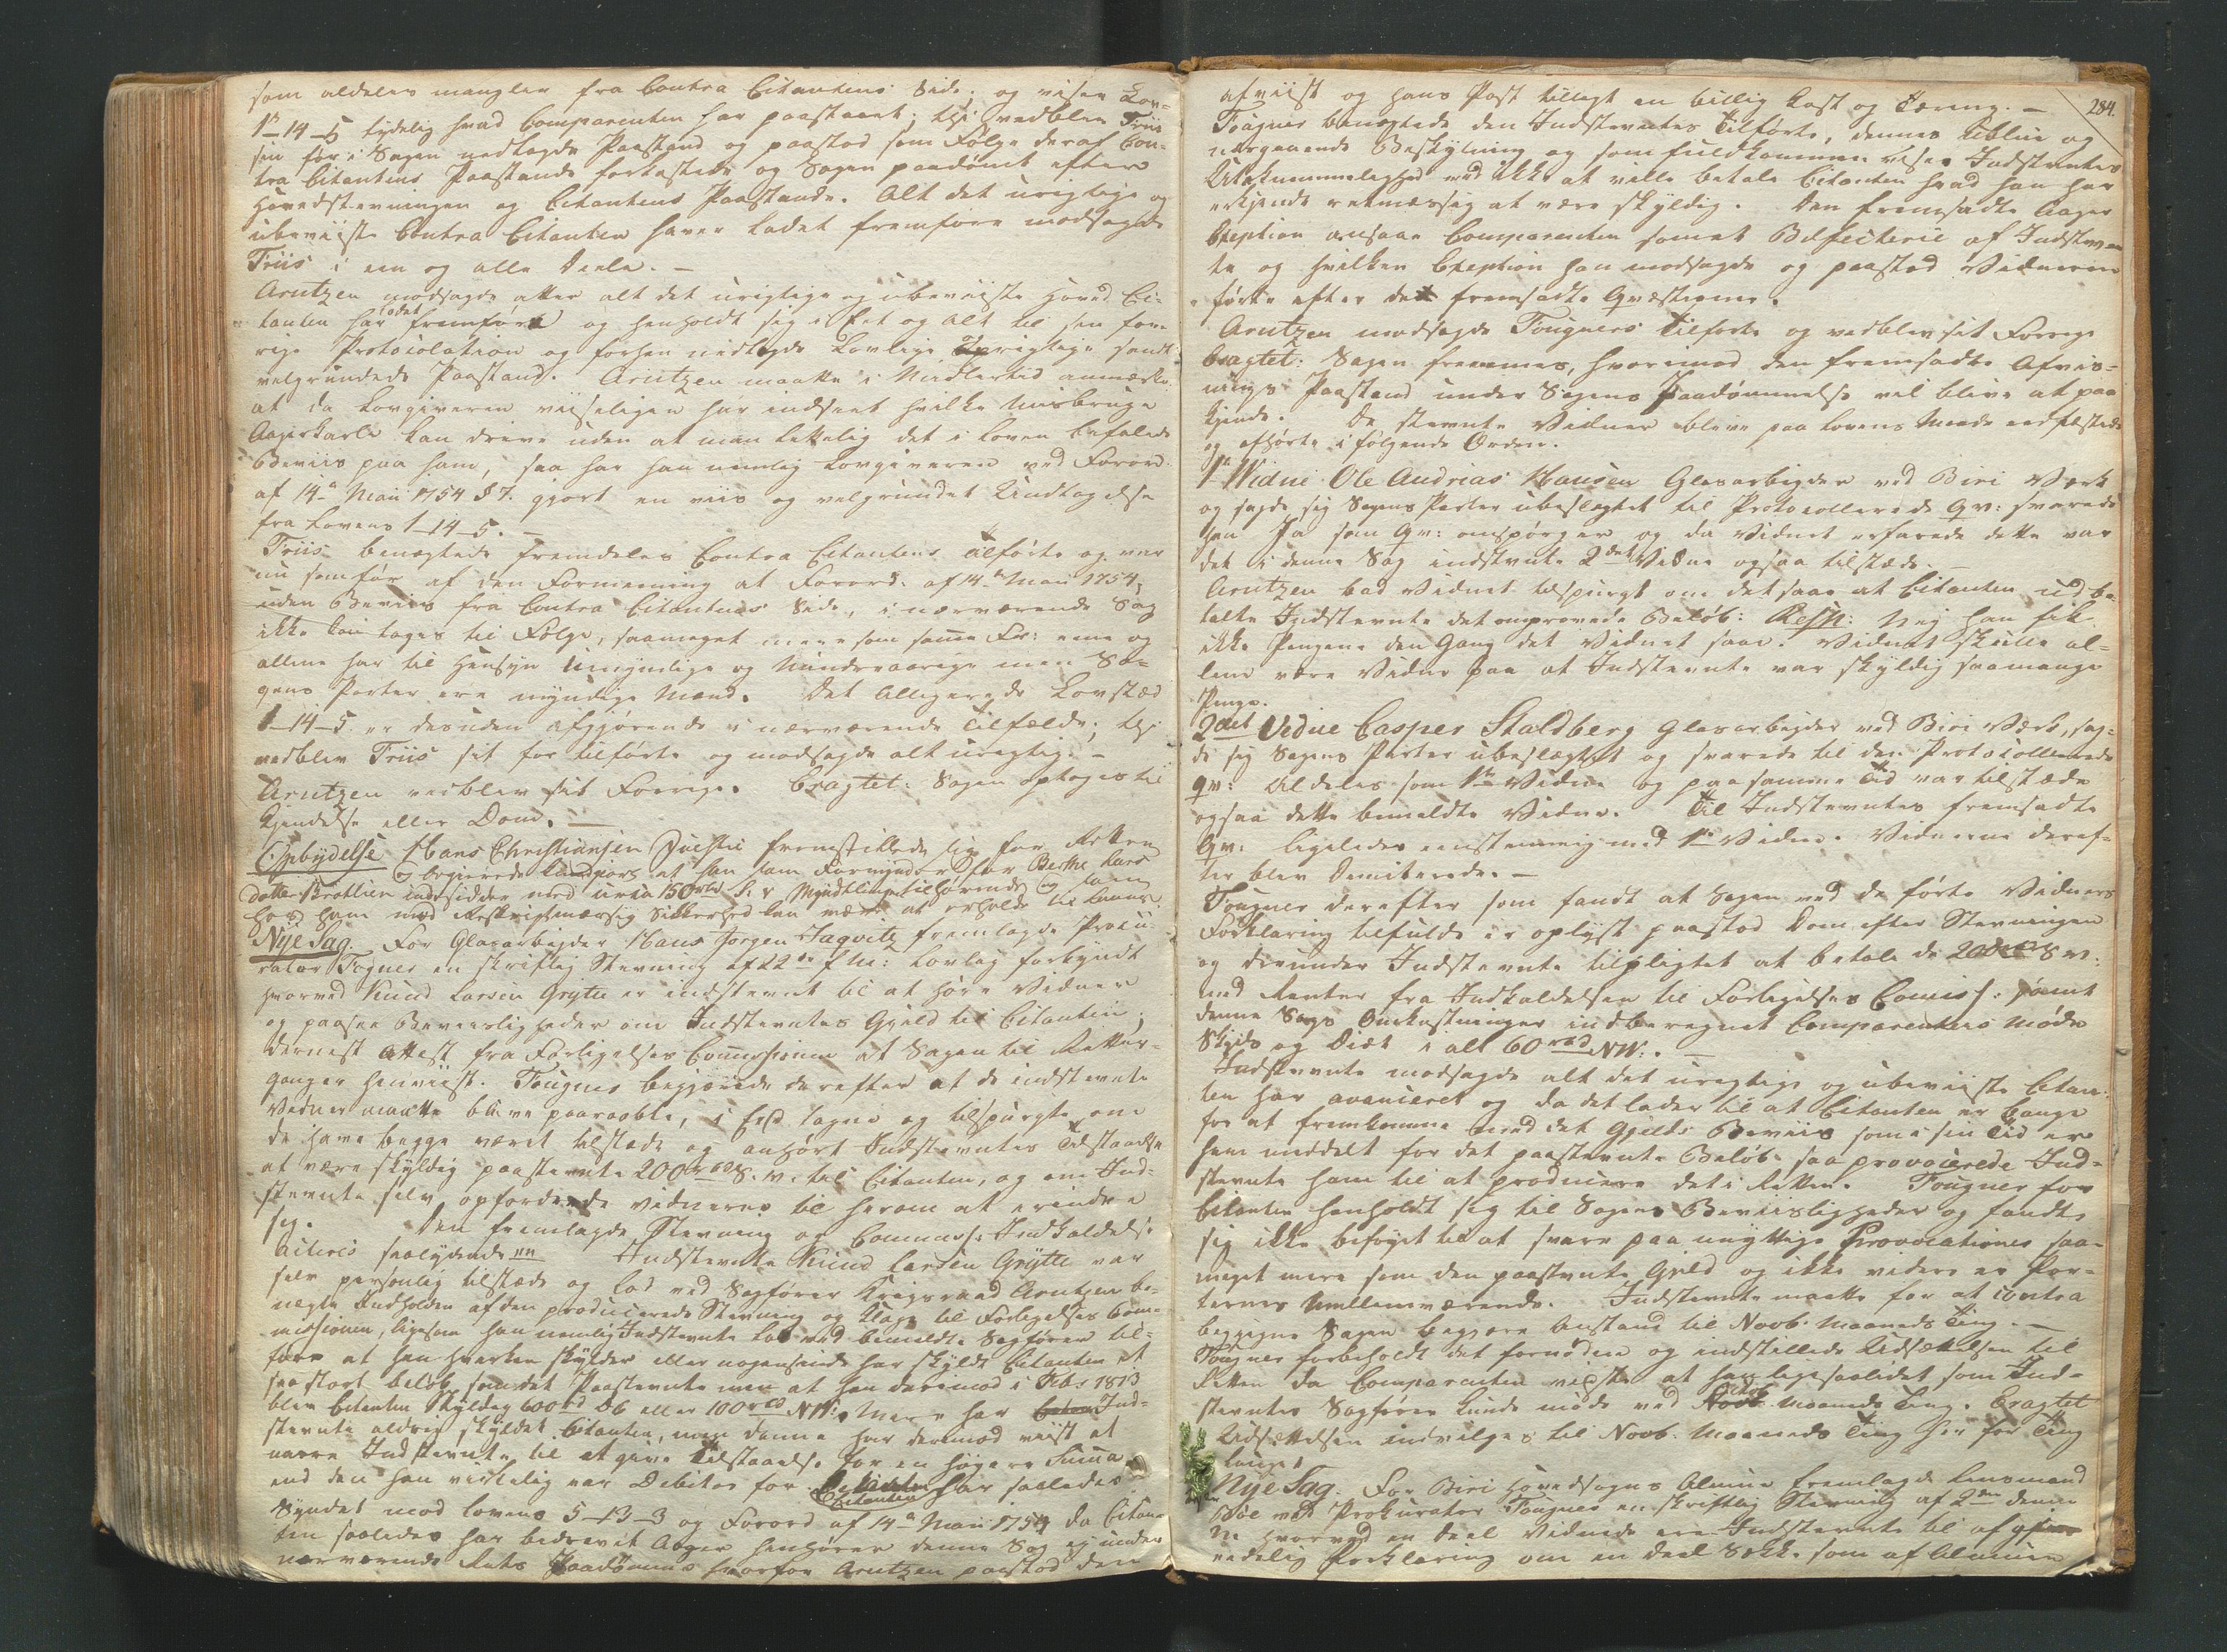 som aldeles mangler fra Contra Citantens Side; og viser Lov-
1s-14-5 tydelig hvad Comparenten har paastaaet; thi vedblev Friis
sin før i Sagen nedlagde Paastand og paastod som Følge deraf Con-
tra Citantens Paastande forkastede og Sagen paadømt efter
Hovedstevningen og Citantens Paastande. Alt det urigtige og
ubeviiste Contra Citanten haver ladet fremføre modsagde
Friis i een og alle Deele. —
Arntzen modsagde atter alt det urigtige og ubeviiste Hoved Ci-
tanten har ladet fremføre og henholdt sig i Eet og Alt til sin for-
rige Protocolation og forhen nedlagde Lovlige rigtige samt
velgrundede Paastand. Arntzen maatte i Midlertid anmærke
at da Lovgiveren viiseligen har indseet hvilke Misbruge
Aagerkarle kan drive uden at man lettelig det i Loven befalede
Beviis paa ham, saa har han nemlig Lovgiveren ved Forord.
af 14de Maii 1754 § 7. gjort en viis og velgrundet Undtagelse
fra Lovens 1-14-5. —
Friis benægtede fremdeles Contra Citantens tilførte og var
nu som før af den Formeening at Forord. af 14de Maii 1754,
uden Beviis fra Contra Citantens Side, i nærværende Sag
ikke kan tages til Følge, saameget mere som samme Fr: ene og
allene har til Hensyn Umyndige og Mindreaarige men Sa-
gens Parter ere myndige Mænd. Det Allegerede Lovsted
1-14-5 er desuden afgjørende i nærværende Tilfælde; thi
vedblev Friis sit før tilførte og modsagde alt urigtig. —
Arntzen vedblev sit Forrige. Eragtet: Sagen optages til
Kjendelse eller Dom. —
Opbydelse Hans Christiansen fremstillede sig for Retten
og begjerede at han som Formynder for Berthe Lars
datter indsidder med 150 rbd S.V. Myndtlingen tilhørende og som
hos ham mod Reskriptmæssig Sikkerhed kan være at erholde til Laans.
Nye Sag. For Glasarbeider Hans Jørgen Jaqvitz fremlagde Procu-
rator Fogner en skriftlig Stevning af 22de f. M: Lovlig forkyndt
hvorved Knud Larsen Grytte er indstevnt til at høre Vidner
og paasee Beviisligheder om Indstevntes Gjeld til Citanten;
dernest Attest fra Forligelses Commissionen at Sagen til Retter-
gang er henviist. Fougner begjærede derefter at de indstevnte
Vidner maatte blive paaraabte, i Eed tagne og tilspurgte om
de have begge været tilstæde og anhørt Indstevntes Tilstaaelse
at være skyldig paastevnte 200 rbd S.V. til Citanten, og om Ind-
stevnte selv opfordrede Vidnerne til herom at erindre
sig. Den fremlagde Stevning og Commiss: Indkaldelse
Acteres saalydende "" Indstevnte Knud Larsen Grytte var
selv personlig tilstæde og lod ved Sagfører Krigsraad Arntzen be-
nægte Indholden af den producerede Stevning og Klage til Forligelses Com-
missionen, ligesom han nemlig Indstevnte lod ved bemeldte Sagfører til-
føre at han hverken skylder eller nogensinde har skyldt Citanten et
saa stort beløb som det Paastevnte men at han derimod i Febr 1813
blev Citanten Skyldig 600 rd DC eller 100 rbd NV. Mere har Ind-
stevnte aldrig skyldet Citanten, men denne har derimod viist at
narre Indstevnte til at give Tilstaaelse for en høyere Summa
end den han virkelig var Debitor for. Citanten har saaledes
Syndet mod Lovens 5-13-3 og Forord af 14de Maii 1754 da Citan-
ten saaledes har bedrevet Aager henhører denne Sag ej under
nærværende Rets Paadømme hvorfor Arntzen paastod den
284.
afviist og hans Part tillagt en billig Kost og Tæring. —
Fougner benægtede den Indstevntes Tilførte, dennes Ublue og
nærgaaende Beskyldning og som fuldkommen viser Indstevntes
Utaknemmelighed ved ikke at ville betale Citanten hvad han har
erkjendt retmæssig at være skyldig. Den fremsadte Aager
Exeption ansaae Comparenten som et af Indstevn-
te og hvilken Exeption han modsagde og paastod Vidnerne
førte efter de fremsadte Qvæstioner.
Arntzen modsagde Fougners Tilførte og vedblev sit Forrige
Eragtet: Sagen fremmes, hvorimod den fremsadte Afvis-
nings Paastand under Sagens Paadømmelse vil blive at paa
kjende. De stevnte Vidner bleve paa Lovens Maade eedfæstede
og afhørte i følgende Orden.
1te Vidne Ole Andreas Hansen Glasarbeyder ved Biri Værk
og sagde sig Sagens Parter ubeslægtet til Protocollerede Qv: svarede
han Ja som Qv: omspørger og da Vidnet erfarede dette var
det i denne Sag indstevnte 2det Vidne ogsaa tilstæde. —
Arntzen bad Vidnet tilspurgt om det saae at Citanten udbe-
talte Indstevnte det omprovede Beløb: Resp: Nej han fik
ikke Pengene den Gang det Vidnet saae. Vidnet skulle al-
lene være Vidne paa at Indstevnte var skyldig saamange
Penge.
2det Vidne Casper Staldberg Glasarbeyder ved Biri Værk, sag-
de sig Sagens Parter ubeslægtet og svarede til den Protocollerede
Qv: aldeles som 1te Vidne og paa samme Tid var tilstæde
ogsaa dette bemeldte Vidne. Til Indstevntes fremsadte
Qv: ligeledes eenstemmig med 1te Vidne. Vidnerne deref-
ter blev Demiterede. —
Fougner derefter som fandt at Sagen ved de førte Vidners
Forklaring tilfulde er oplyst paastod Dom efter Stevningen
og derunder Indstevnte tilpligtet at betale de 200 rbd S V:
med Renter fra Indkaldelsen til Forligelses Comiss: samt
denne Sags Omkostninger indberegnet Comparentens møde
Skyds og Diæt i alt 60 rbd NV. —
Indstevnte modsagde alt det urigtige og ubeviiste Citan-
ten har avanceret og da det lader til at Citanten er bange
for at fremkomme med det Gjelds Beviis som i sin Tid er
ham meddelt for det paastevnte Beløb saa provocerede Ind-
stevnte ham til at producere det i Retten. Fougner for
Citanten henholdt sig til Sagens Beviisligheder og fandt
sig ikke beføyet til at svare paa unyttige Provocationer saa-
meget mere som den paastevnte Gjeld og ikke videre er Par-
ternes Mellemværende. Indstevnte maatte for at contra
beggigne Sagen begjære Anstand til Novb. Maaneds Ting. —
Fougner forbeholdt det fornødne og indstillede Udsættelsen til
Retten da Comparenten vidste at han ligesaalidet som Ind-
stevntes Sagfører kunde møde ved Octob. Maaneds Ting. Eragtet
Udsættelsen indvilges til Novb. Maaneds Ting her for Ting
lauget
Nye Sag. For Biri Hovedsogns Almue fremlagde Lensmand
Böe ved Prokurator Fougner en skriftlig Stevning af 2den denne
M: hvorved en Deel Vidner ere Indstevnte til
eedelig Forklaring om en deel Sække som af Almuen